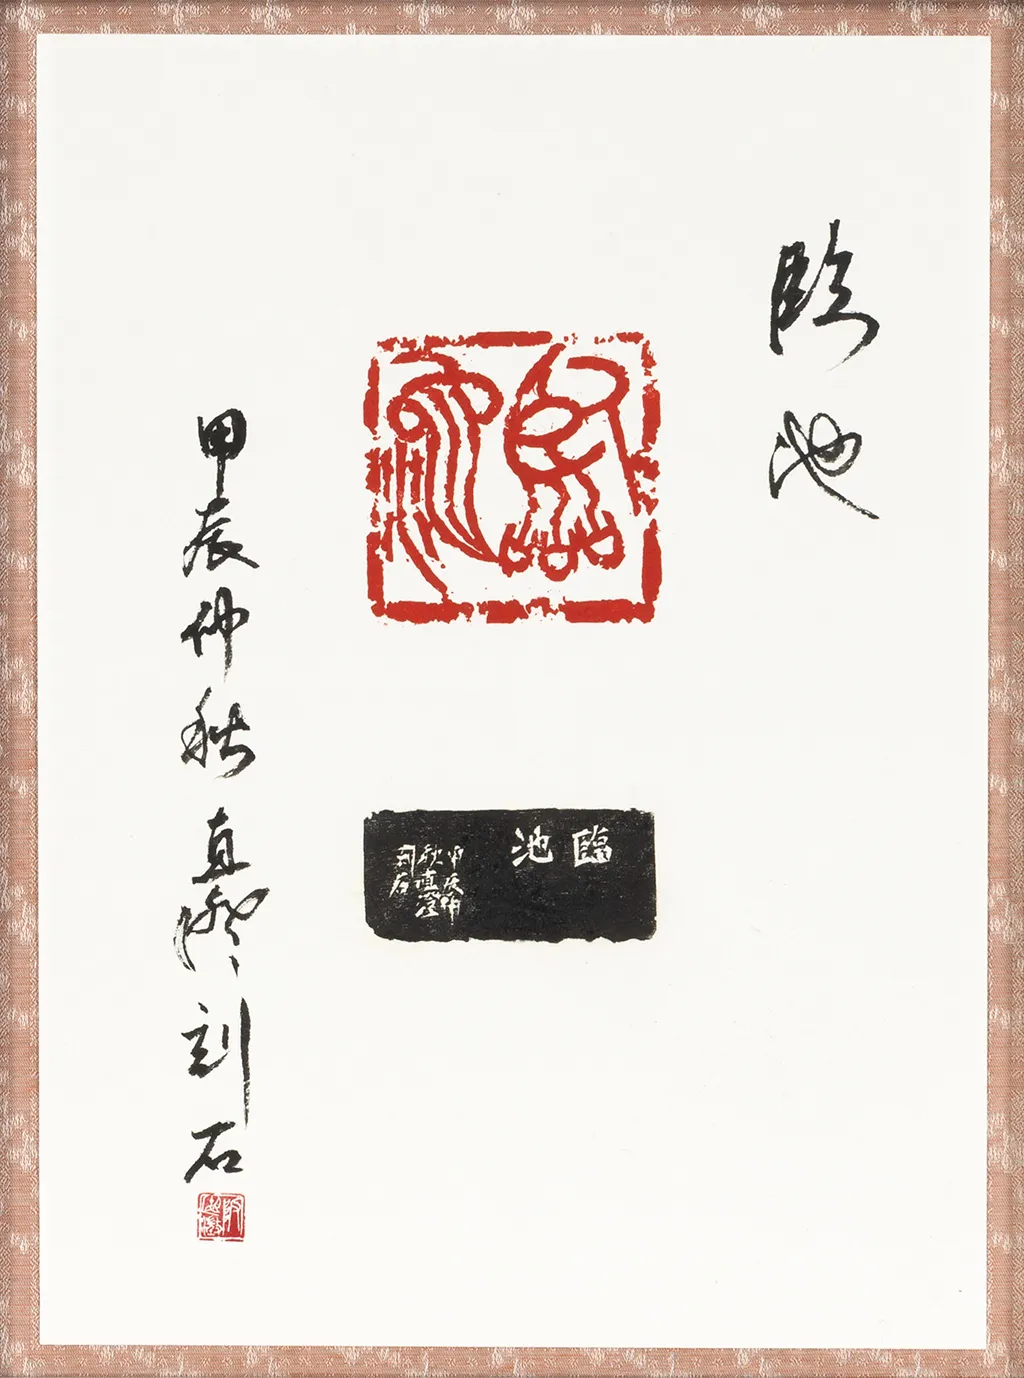 臨池
臨池
臨池
甲辰仲
秋直澄
刻石
甲辰仲秋直澄刻石